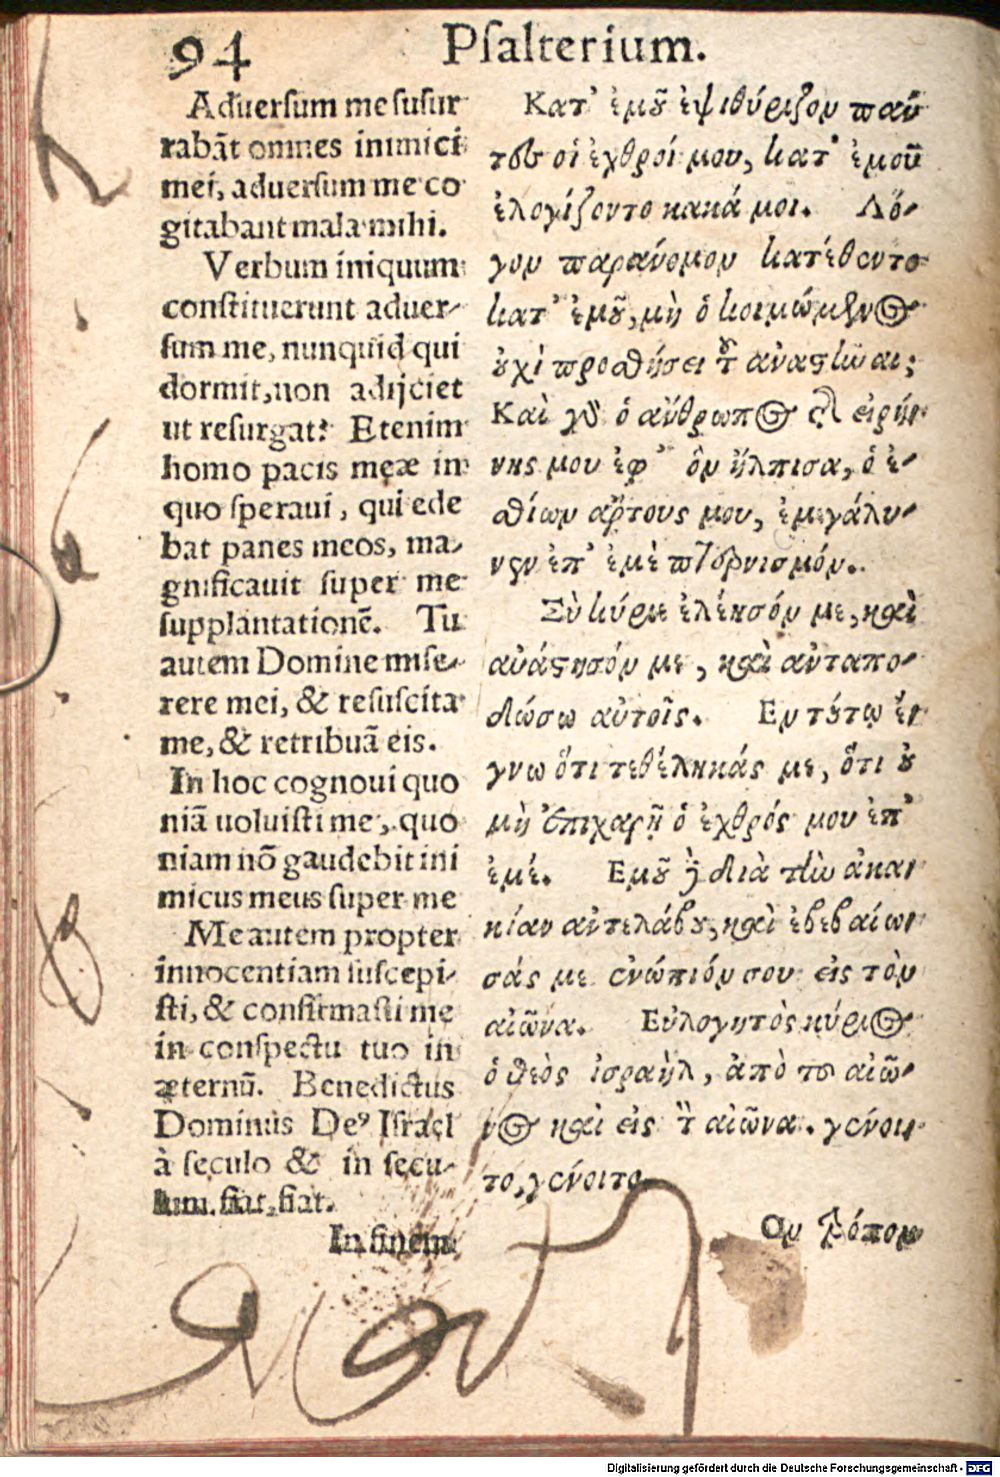 94 Psalterium.
Aduersum me susur
rabãt omnes inimici
mei, aduersum me co
gitabant mala mihi.
Verbum iniquum
constituerunt aduer-
sum me, nunquid qui
dormit, non adijciet
ut resurgat? Etenim
homo pacis meæ in
quo speraui, qui ede
bat panes meos, ma-
gnificauit super me
supplantationẽ. Tu
autem Domine mise-
rere mei, & resuscita
me, & retribuã eis.
In hoc cognoui quo
niã uoluisti me, quo
niam nõ gaudebit ini
micus meus super me
Me autem propter
innocentiam suscepi-
sti, & confirmasti me
in conspectu tuo in
æternũ. Benedictus
Dominus Deꝰ Israel
à seculo & in secu-
lum. fiat, fiat.
In finem
Κατ' ἐμȣ͂ ἐψιθύριζον πάν
τες οἱ ἐχθροί μου, κατ' ἐμοῦ
ἐλογίζοντο κακά μοι. Λό-
γον παράνομον κατέθεντο
κατ' ἐμȣ͂, μὴ ὁ κοιμώμενος
ȣ̓χὶ προσθήσει τȣ͂ ἀναστῆναι;
Καὶ γὰρ ὁ ἄνθρωπος τῆς εἰρή-
νης μου ἐφ' ὃν ἤλπισα, ὁ ἐ-
σθίων ἄρτους μου, ἐμεγάλυ-
νεν ἐπ' ἐμὲ πτερνισμόν.
Σὺ κύριε ἐλέησόν με, καὶ
ἀνάστησόν με, καὶ ἀνταπο-
δώσω αὐτοῖς. Εν τȣ́τῳ ἔ-
γνω ὅτι τεθέληκάς με, ὅτι ȣ̓
μὴ ἐπιχαρῇ ὁ ἐχθρός μου ἐπ'
ἐμέ. Εμȣ͂ δὲ διὰ τὴν ἀκα-
κίαν ἀντελάβȣ, καὶ ἐβεβαίω-
σάς με ἐνώπιόν σου εἰς τὸν
αἰῶνα. Εὐλογητὸς κύριος
ὁ θεὸς ἰσραὴλ, ἀπὸ τοῦ αἰῶ-
νος καὶ εἰς τὸν αἰῶνα. γένοι-
το, γένοιτο.
Ον τρόπον
Digitalisierung gefördert durch die Deutsche Forschungsgemeinschaft - DFG